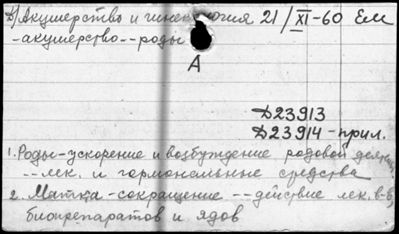 б) Акушерство и гинекология 21/XI-60 Ем
-акушерство--роды
А
Д23913
Д23914-прил.
1. Роды-ускорение и возбуждение родовой деят
--лек. и гормональные средства
2. Матка-сокращение--действие лек. в-в,
биопрепаратов и ядов